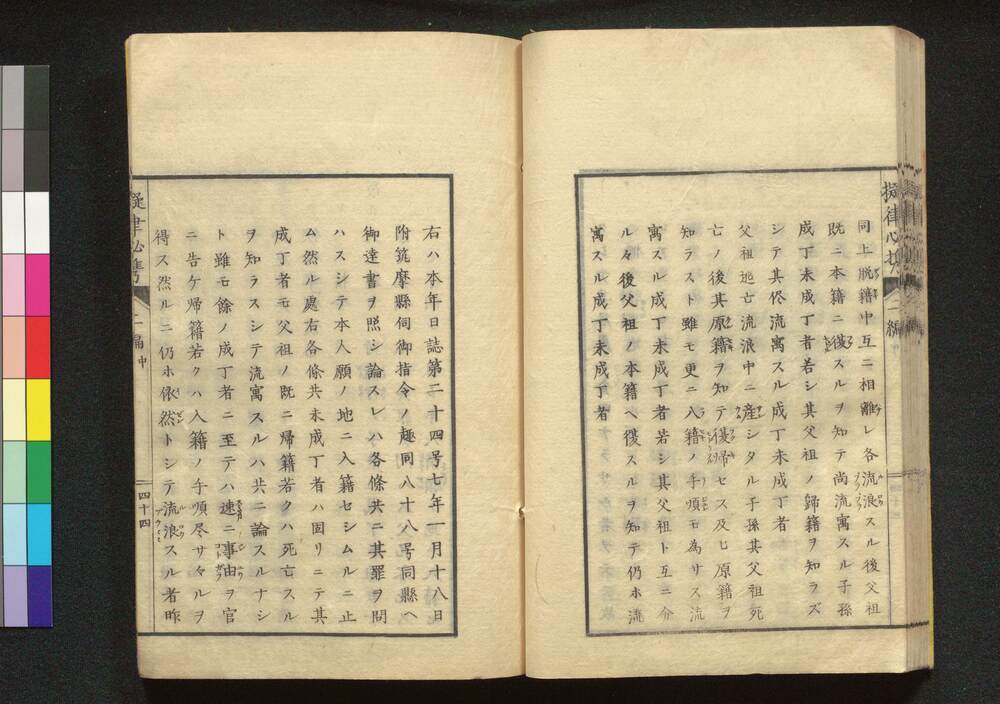 同上脱籍中互ニ相離レ各流浪スル後父祖
既ニ本籍ニ復スルヲ知テ尚流寓スル子孫
成丁未成丁者若シ其父祖ノ歸籍ヲ知ラズ
シテ其侭流寓スル成丁未成丁者
父祖逃亡流浪中ニ産シタル子孫其父祖死
亡ノ後其原籍ヲ知テ復帰セス及ヒ原籍ヲ
知ラスト雖モ更ニ入籍ノ手順モ為サス流
寓スル成丁未成丁者若シ其父祖ト互ニ分
ル々後父祖ノ本籍ヘ復スルヲ知テ仍ホ流
寓スル成丁未成丁者
二編
右ハ本年日誌第二十四号七年一月十八日
附筑摩縣伺御指令ノ趣同八十八号同縣ヘ
御達書ヲ照シ論スレハ各條共ニ其罪ヲ問
ハスシテ本人願ノ地ニ入籍セシムルニ止
ム然ル處右各條共未成丁者ハ固リニテ其
成丁者モ父祖ノ既ニ帰籍若クハ死亡スル
ヲ知ラスシテ流寓スルハ共ニ論スルナシ
ト雖モ餘ノ成丁者ニ至テハ速ニ事由ヲ官
ニ告ケ帰籍若クハ入籍ノ手順尽サヾルヲ
得ス然ルニ仍ホ依然トシテ流浪スル者昨
二編中
四十四